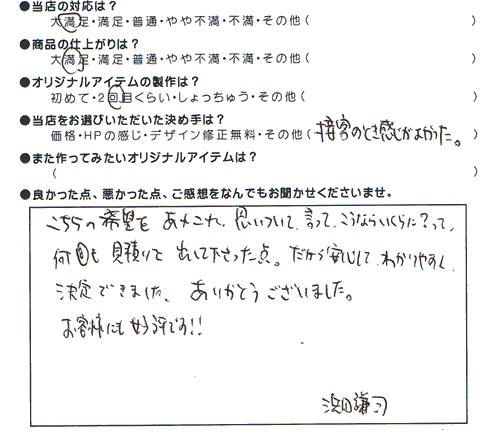 ●当店の対応は？
大満足・満足・普通・やや不満・不満・その他(　)
●商品の仕上がりは？
大満足・満足・普通・やや不満・不満・その他(　)
●オリジナルアイテムの製作は？
初めて・2回目くらい・しょっちゅう・その他(　)
●当店をお選びいただいた決め手は？
価格・HPの感じ・デザイン修正無料・その他(接客のとき感じがよかった。)
●また作ってみたいオリジナルアイテムは？
(　)
●良かった点、悪かった点、ご感想をなんでもお聞かせくださいませ。
こちらの希望を あれこれ、思いついて 言って、こうならいくらに?って、
何回も 見積りを 出して下さった点。だから安心して わかりやすく
決定できました、ありがとうございました。
お客様にも好評です!!
浜田謙司